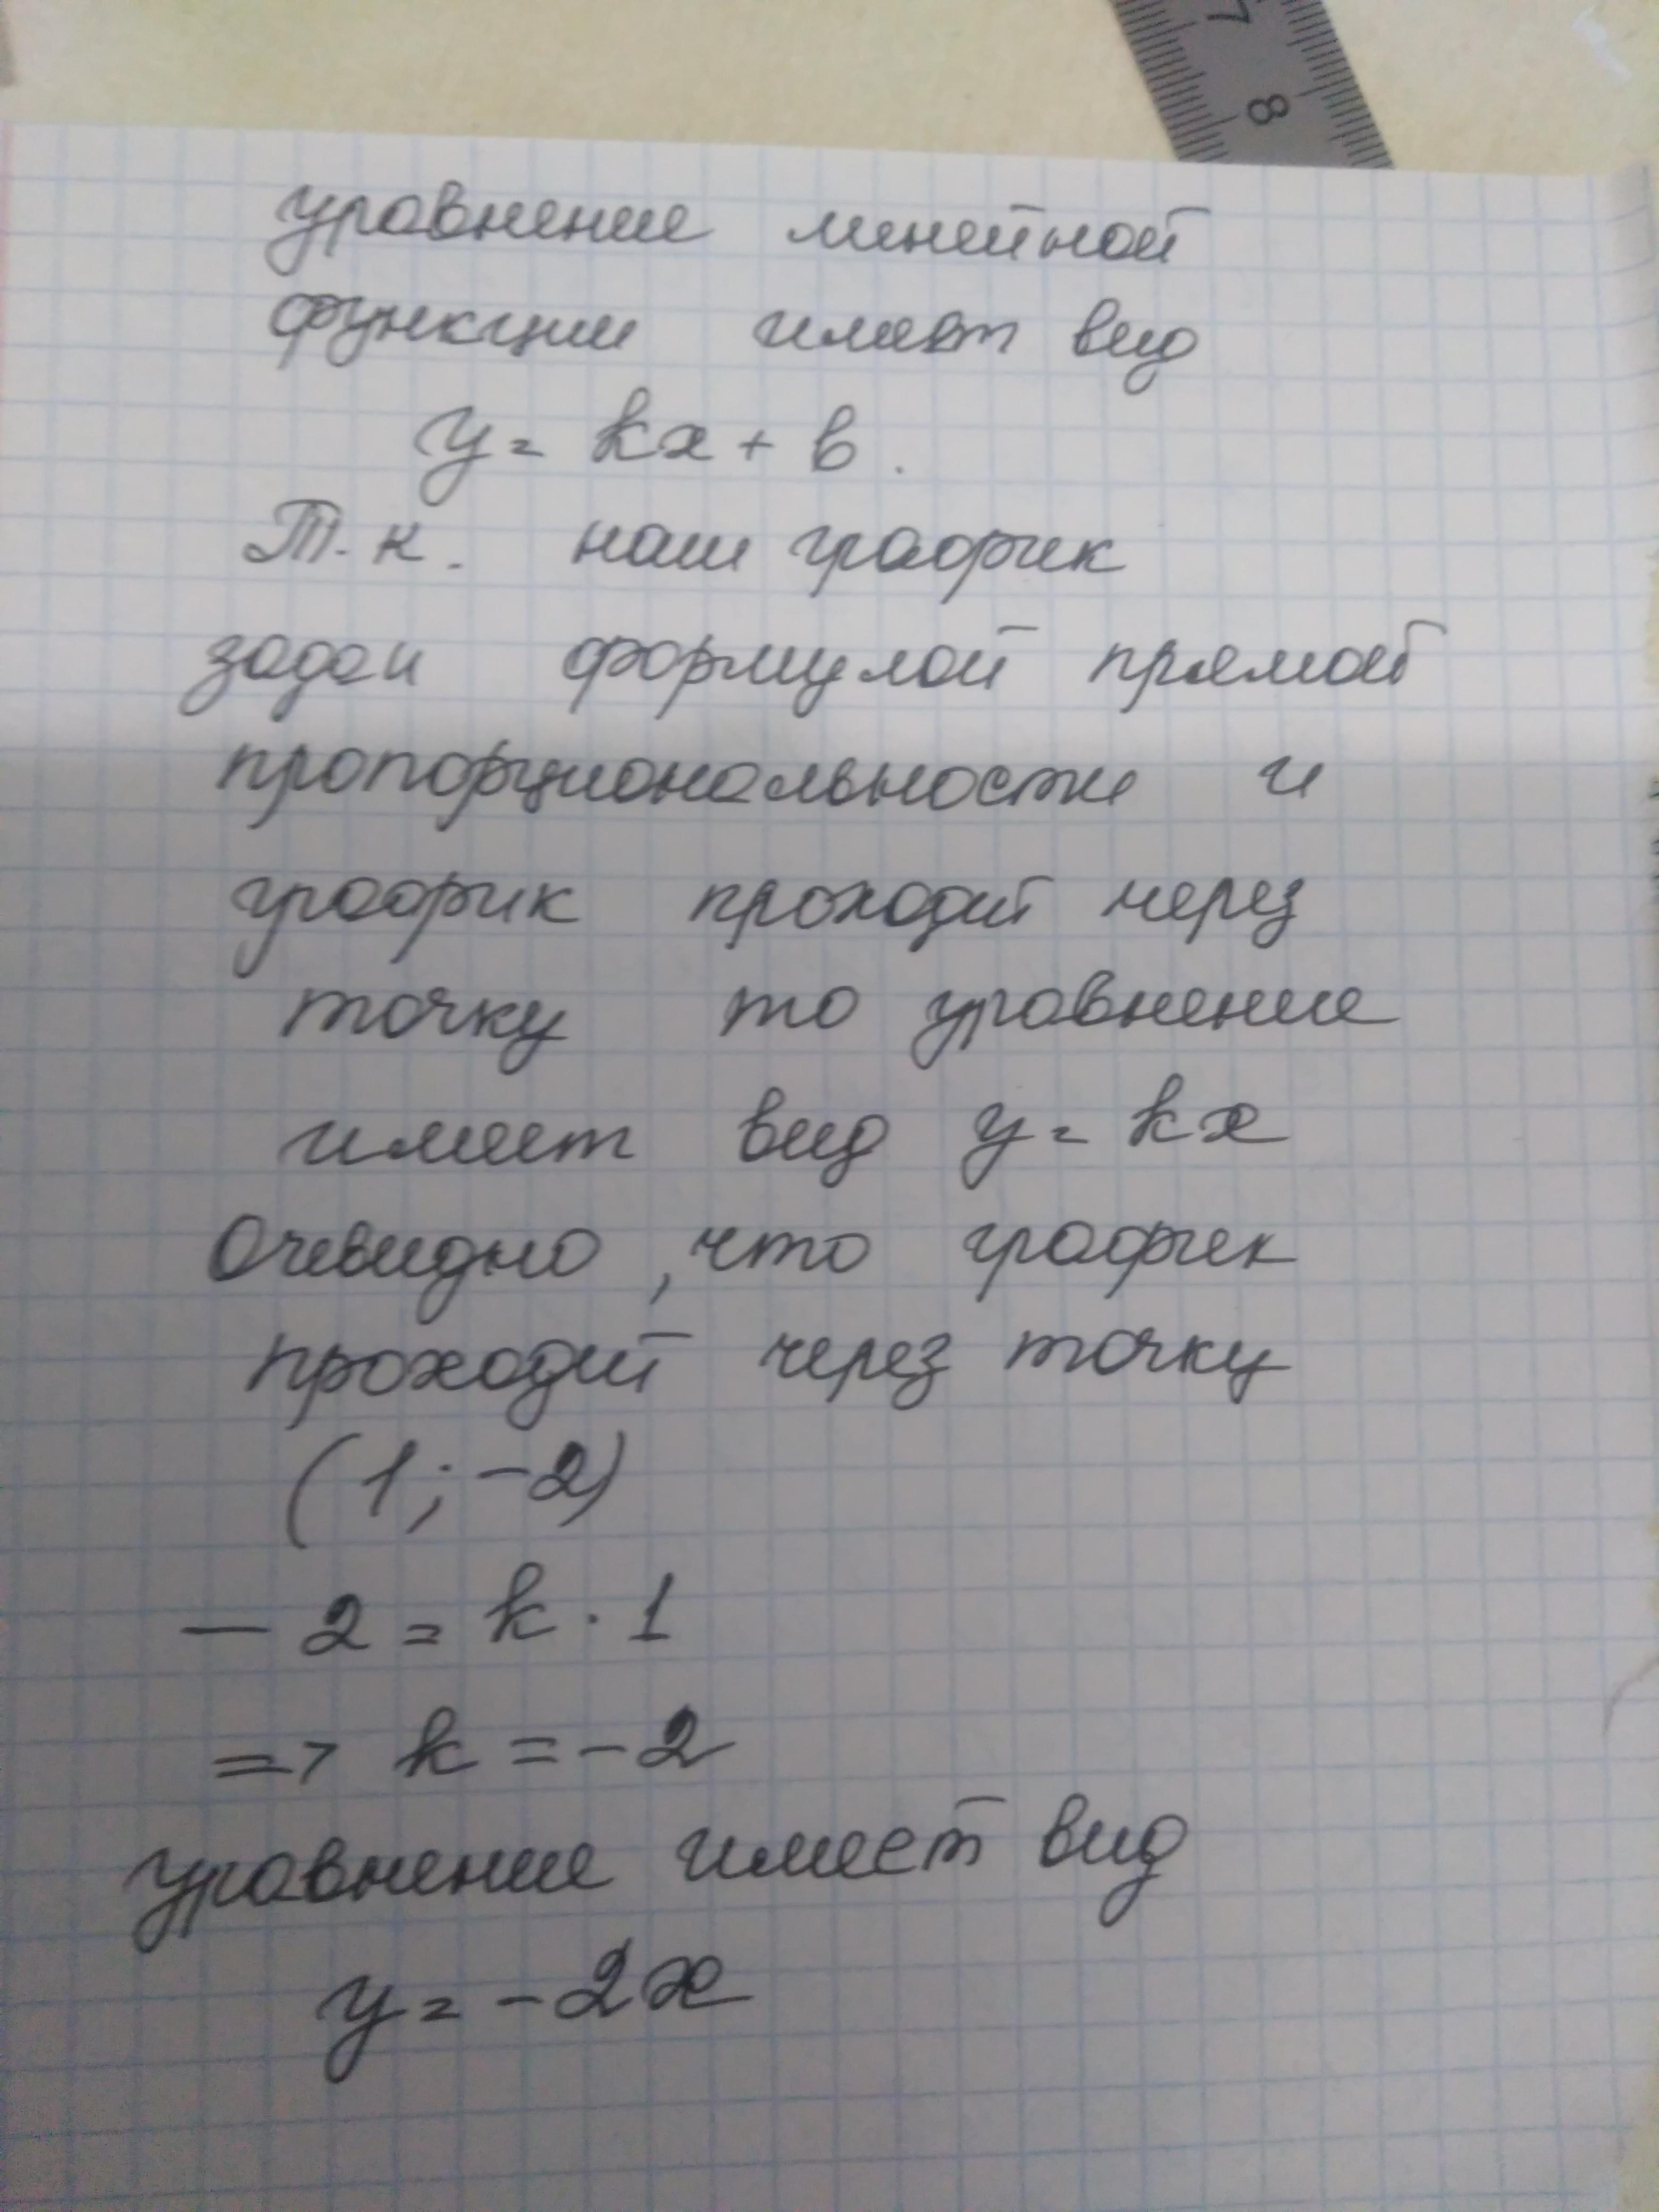 7
8
уравнение линейной
функции имеет вид
y = kx + b.
Т.к. наш график
задан формулой прямой
пропорциональности и
график проходит через
точку то уравнение
имеет вид y = kx
Очевидно, что график
проходит через точку
(1; -2)
- 2 = k · 1
=> k = -2
уравнение имеет вид
y = -2x